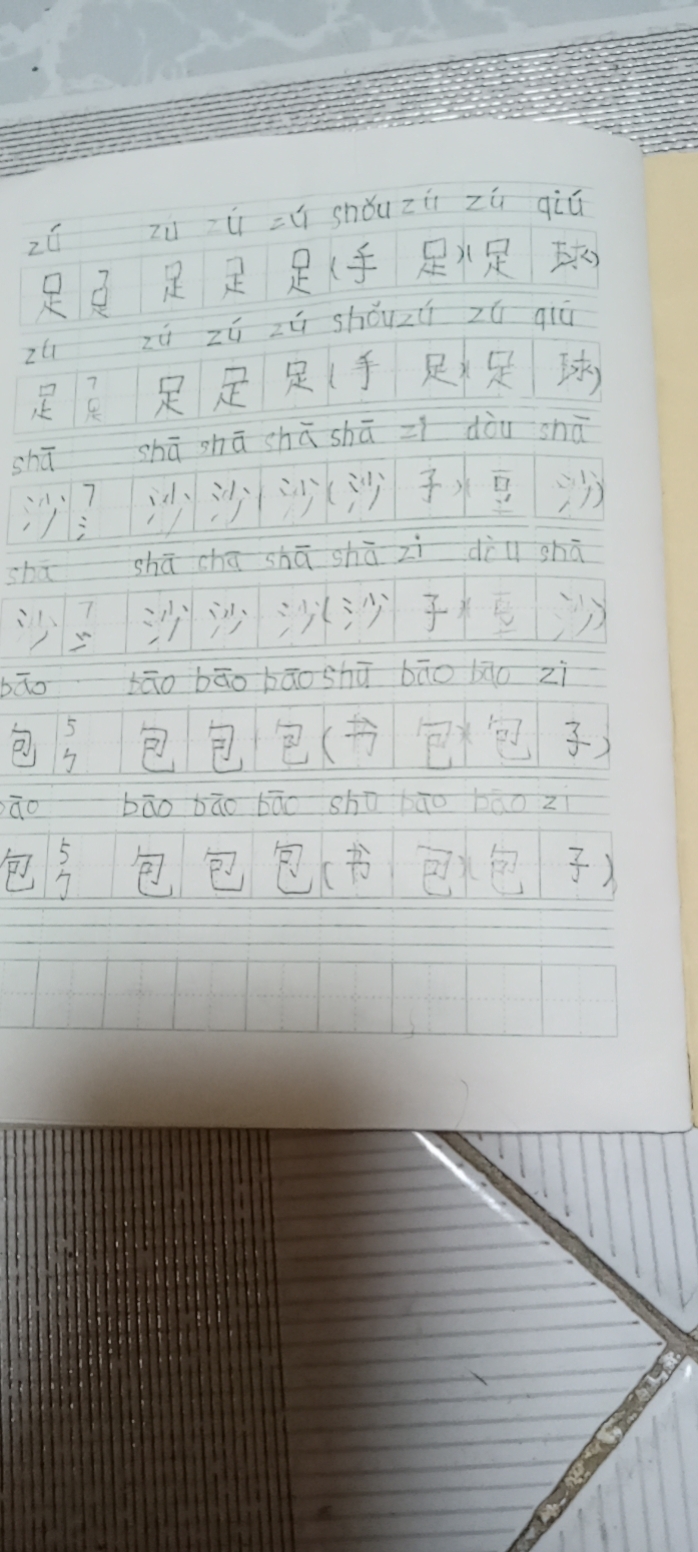 zú zú zú zú shǒu zú zú qiú
足 7 足 足 足 足(手 足)(足 球)
zú zú zú zú shǒu zú zú qiú
足 7 足 足 足 足(手 足)(足 球)
shā shā shā shā shā zi dòu shā
沙 7 氵 沙 沙 沙(沙 子)(豆 沙)
shā shā shā shā shā zi dòu shā
沙 7 氵 沙 沙 沙(沙 子)(豆 沙)
bāo bāo bāo bāo shū bāo bāo zi
包 5 勹 包 包 包(书 包)(包 子)
bāo bāo bāo bāo shū bāo bāo zi
包 5 勹 包 包 包(书 包)(包 子)